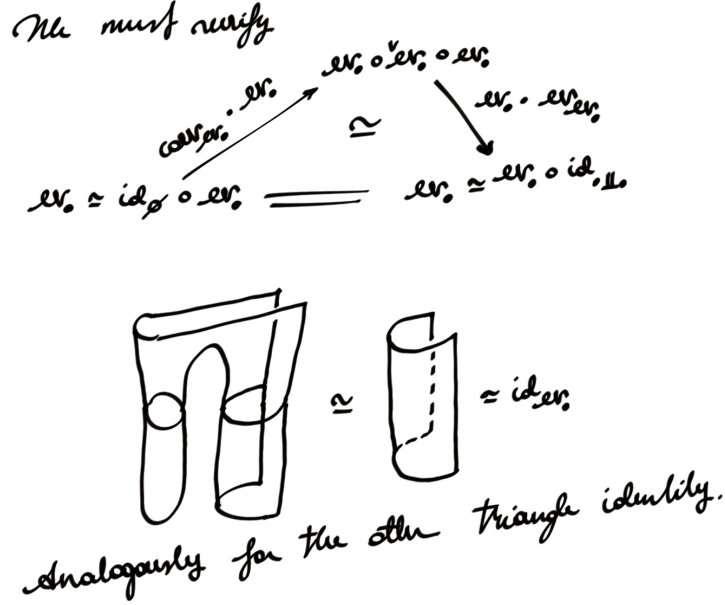 We must verify
ev. ∘ ᵛev. ∘ ev.
coev_{ev.} · ev.
ev. · ev_{ev.}
≃
ev. ≃ id_∅ ∘ ev. = ev. ≃ ev. ∘ id_{.⊔.}
≃ ≃ id_{ev.}
Analogously for the other triangle identity.